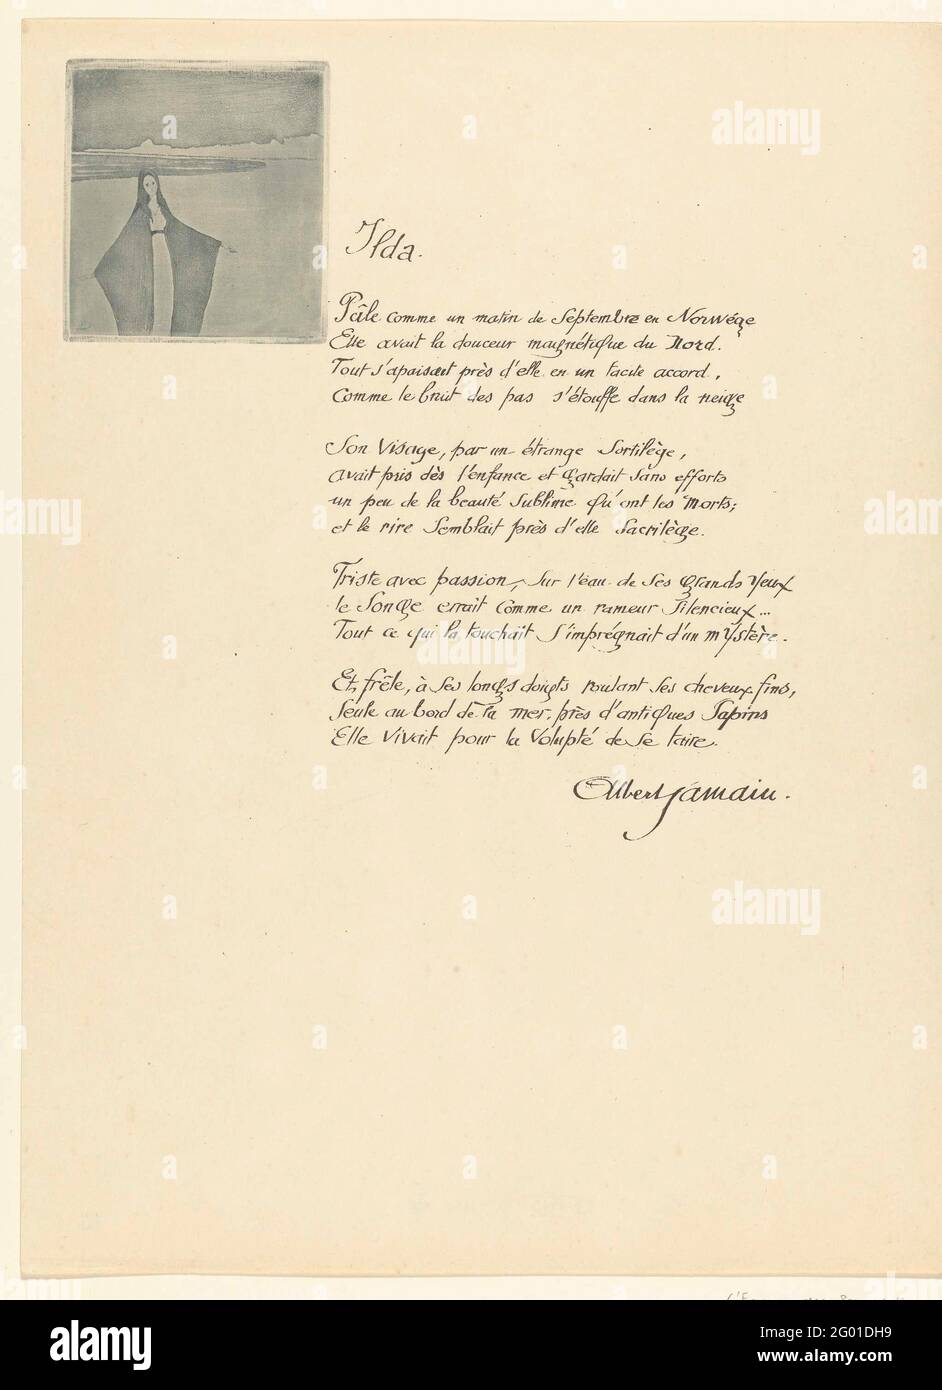 Ilda.
Pâle comme un matin de Septembre en Norwége
Elle avait la douceur magnétique du Nord.
Tout s'apaisait près d'elle en un facile accord,
Comme le bruit des pas s'étouffe dans la neige
Son Visage, par un étrange Sortilège,
avait pris dès l'enfance et gardait Sans efforts
un peu de la beauté Sublime qu'ont les Morts;
et le rire Semblait près d'elle Sacrilège.
Triste avec passion, Sur l'eau de Ses grands Yeux
le Songe errait comme un rameur Silencieux...
Tout ce qui la touchait S'imprégnait d'un mYstère.
Et, frêle, à Ses longs doigts roulant Ses cheveux fins,
Seule au bord de la mer, près d'antiques Sapins
Elle Vivait pour la Volupté de Se taire.
Albert Samain.
alamy
Image ID: 2G01DH9
www.alamy.com